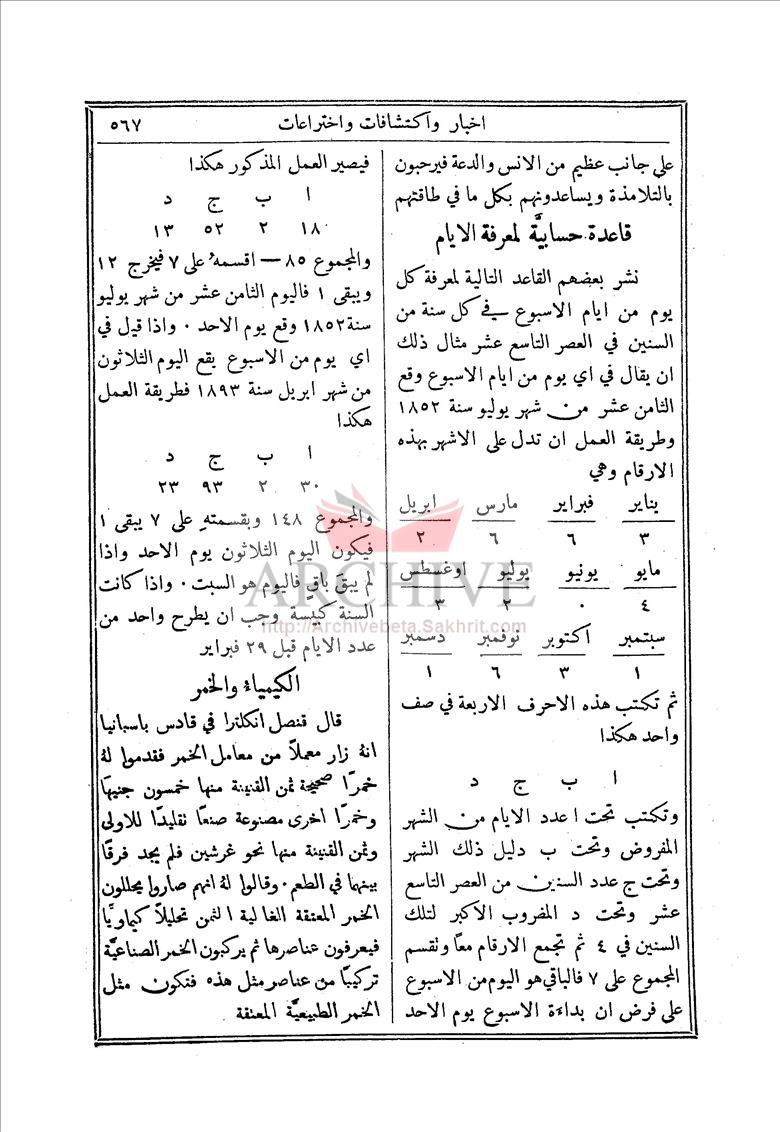 اخبار واكتشافات واختراعات
٥٦٧
على جانب عظيم من الانس والدعة فيرحبون
بالتلامذة ويساعدونهم بكل ما في طاقتهم
قاعدة حسابيَّة لمعرفة الايام
نشر بعضهم القاعد التالية لمعرفة كل
يوم من ايام الاسبوع في كل سنة من
السنين في العصر التاسع عشر مثال ذلك
ان يقال في اي يوم من ايام الاسبوع وقع
الثامن عشر من شهر يوليو سنة ١٨٥٢
وطريقة العمل ان تدل على الاشهر بهذه
الارقام وهي
يناير فبراير مارس ابريل
٣ ٦ ٦ ٢
مايو يونيو يوليو اوغسطس
٤ ٠ ٢ ٣
سبتمبر اكتوبر نوفمبر دسمبر
١ ٣ ٦ ١
ثم تكتب هذه الاحرف الاربعة في صف
واحد هكذا
ا ب ج د
وتكتب تحت ا عدد الايام من الشهر
المفروض وتحت ب دليل ذلك الشهر
وتحت ج عدد السنين من العصر التاسع
عشر وتحت د المفروب الاكبر لتلك
السنين في ٤ ثم تجمع الارقام معًا وتقسم
المجموع على ٧ فالباقي هو اليوم من الاسبوع
على فرض ان بداءة الاسبوع يوم الاحد
فيصير العمل المذكور هكذا
ا ب ج د
١٨ ٢ ٥٢ ١٣
والمجموع ٨٥ — اقسمهُ على ٧ فيخرج ١٢
ويبقى ١ فاليوم الثامن عشر من شهر يوليو
سنة ١٨٥٢ وقع يوم الاحد ٠ واذا قيل في
اي يوم من الاسبوع يقع اليوم الثلاثون
من شهر ابريل سنة ١٨٩٣ فطريقة العمل
هكذا
ا ب ج د
٣٠ ٢ ٩٣ ٢٣
والمجموع ١٤٨ وبقسمتهِ على ٧ يبقى ١
فيكون اليوم الثلاثون يوم الاحد واذا
لم يبقَ باقٍ فاليوم هو السبت ٠ واذا كانت
السنة كبيسة وجب ان يطرح واحد من
عدد الايام قبل ٢٩ فبراير
الكيمياء والخمر
قال قنصل انكلترا في قادس باسبانيا
انهُ زار معملاً من معامل الخمر فقدموا لهُ
خمرًا صحيحة ثمن القنينة منها خمسون جنيهًا
وخمرًا اخرى مصنوعة صنعًا تقليدًا للاولى
وثمن القنينة منها نحو غرشين فلم يجد فرقًا
بينهما في الطعم ٠ وقالوا لهُ انهم صاروا يحللون
الخمر المعتقة الغالية الثمن تحليلاً كيماويًّا
فيعرفون عناصرها ثم يركبون الخمر الصناعيَّة
تركيبًا من عناصر مثل هذه فتكون مثل
الخمر الطبيعيَّة المعتقة
ARCHIVE
http://Archivebeta.Sakhrit.com